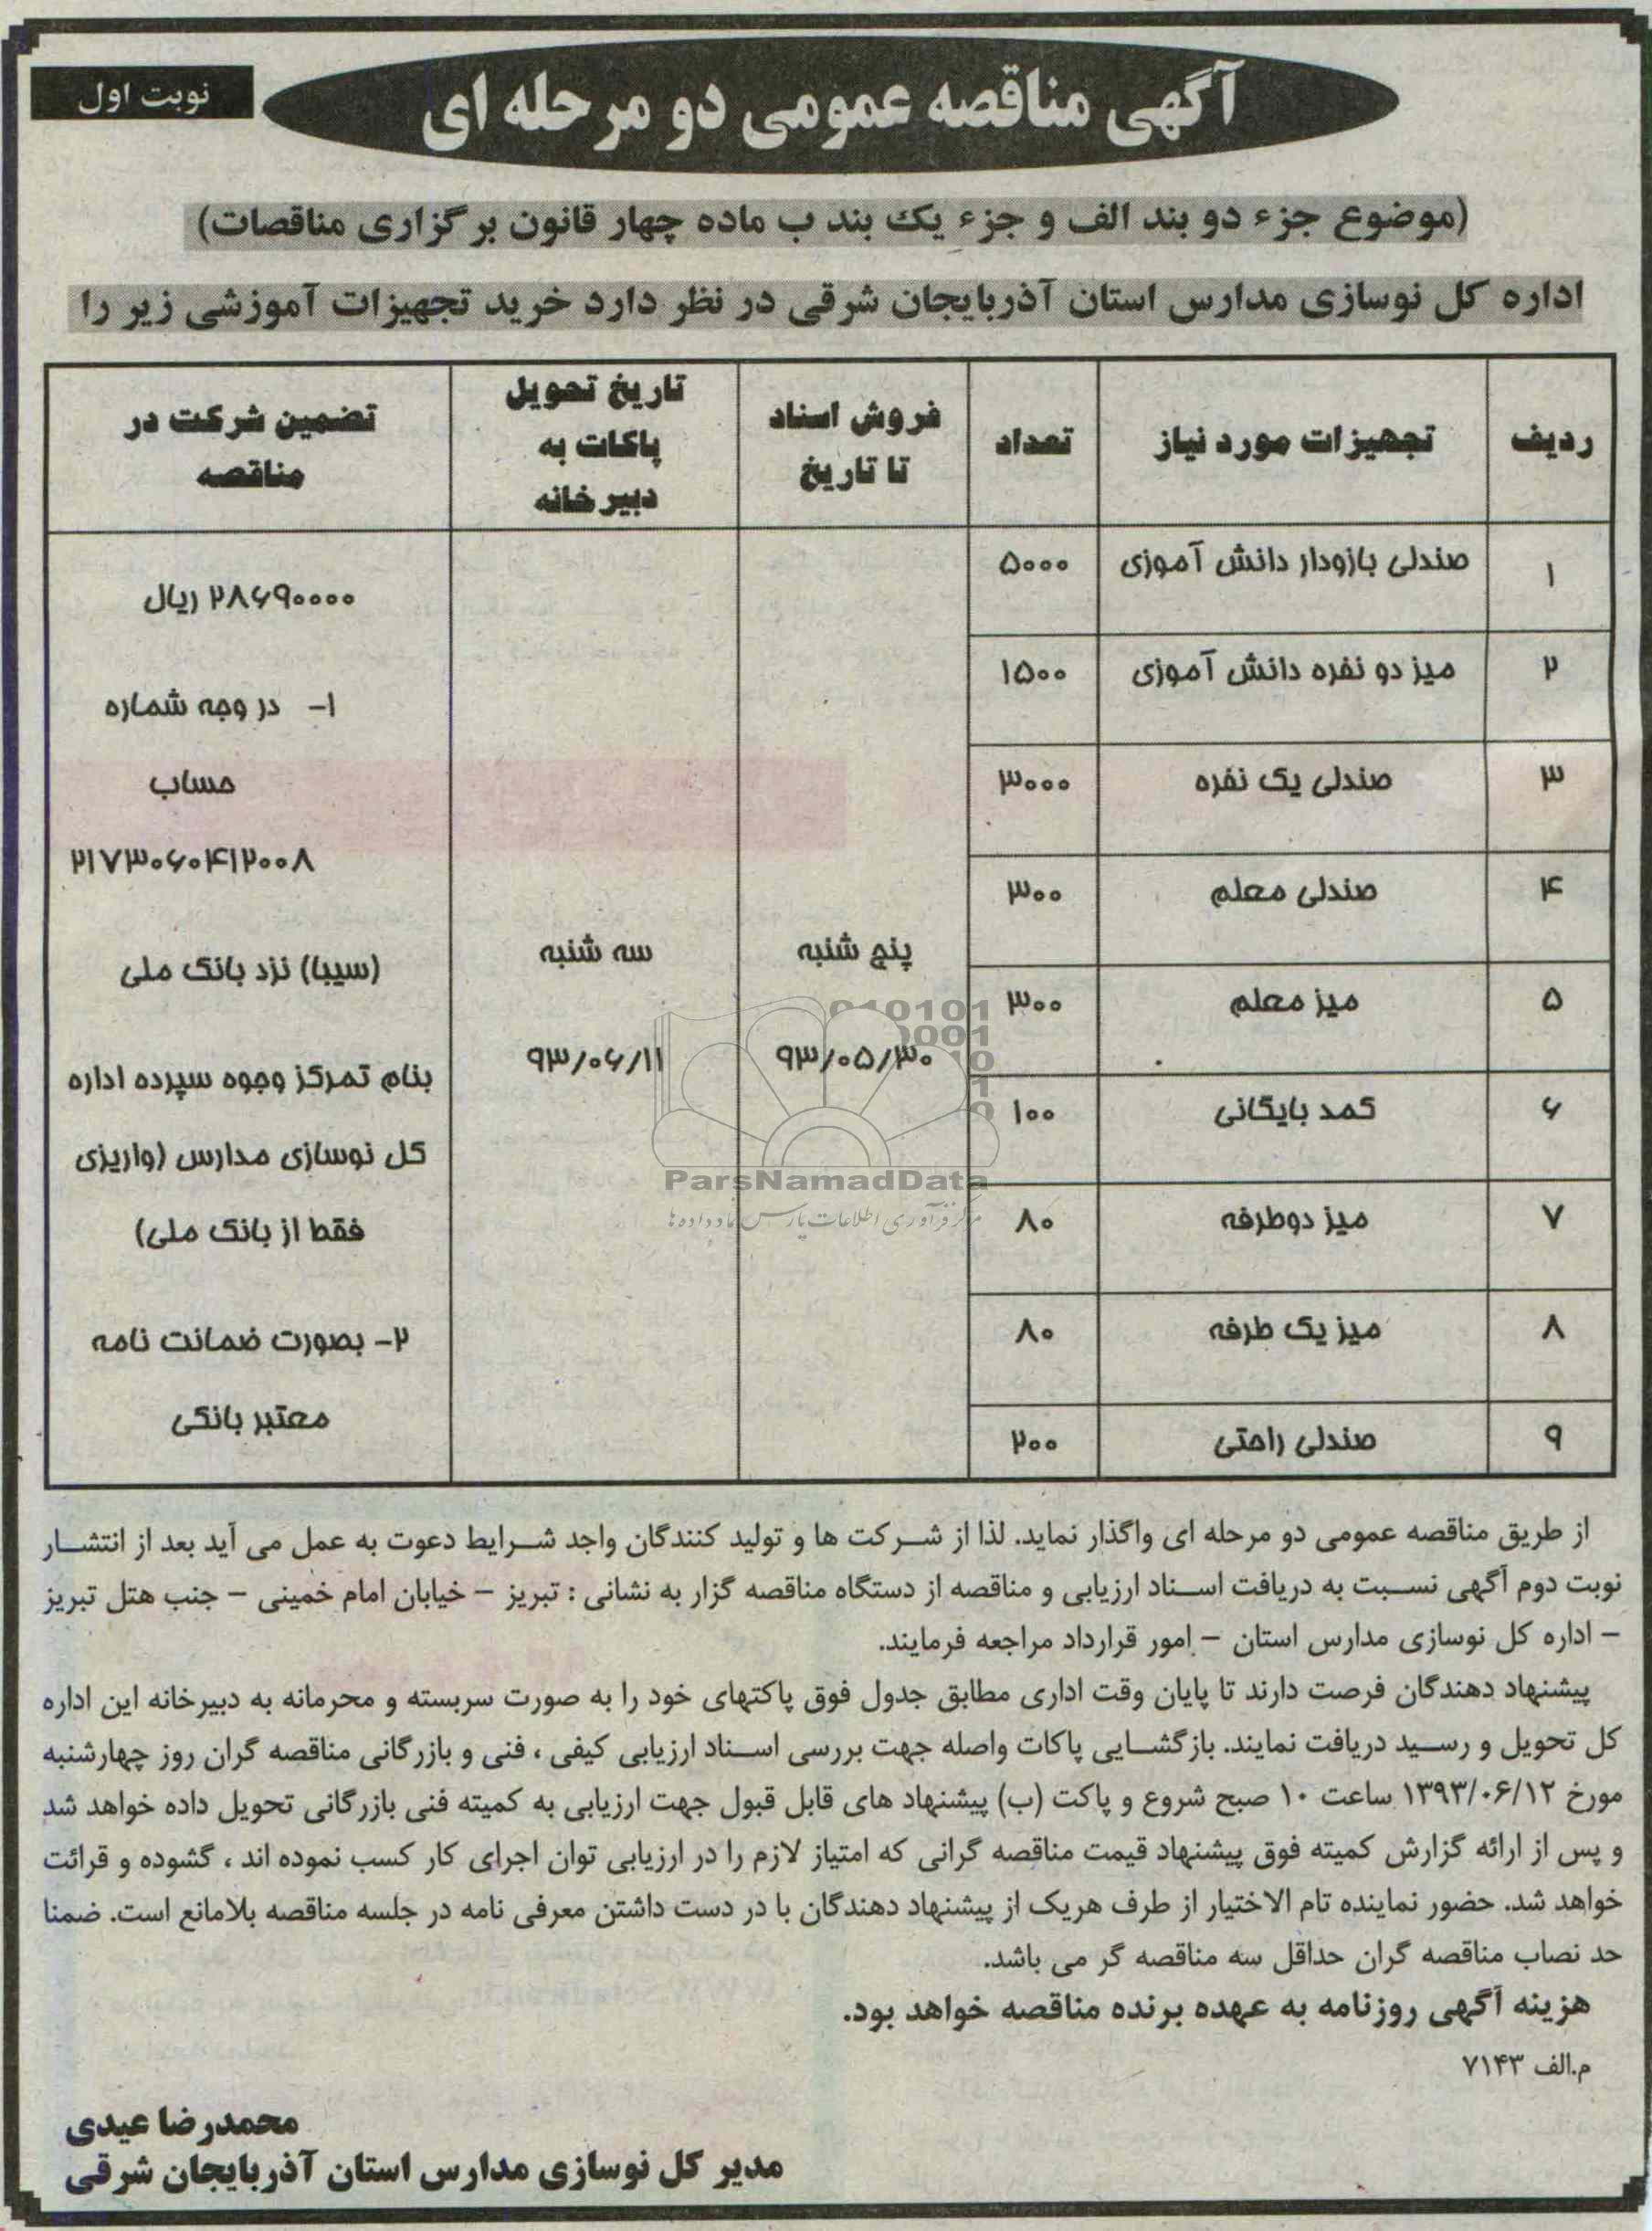 نوبت اول
آگهی مناقصه عمومی دو مرحله ای
(موضوع جزء دو بند الف و جزء یک بند ب ماده چهار قانون برگزاری مناقصات)
اداره کل نوسازی مدارس استان آذربایجان شرقی در نظر دارد خرید تجهیزات آموزشی زیر را
ردیف تجهیزات مورد نیاز تعداد فروش اسناد تا تاریخ تاریخ تحویل پاکات به دبیرخانه تضمین شرکت در مناقصه
۱ صندلی بازودار دانش آموزی ۵۰۰۰
۲ میز دو نفره دانش آموزی ۱۵۰۰
۳ صندلی یک نفره ۳۰۰۰
۴ صندلی معلم ۳۰۰
۵ میز معلم ۳۰۰
۶ کمد بایگانی ۱۰۰
۷ میز دوطرفه ۸۰
۸ میز یک طرفه ۸۰
۹ صندلی راحتی ۲۰۰
پنج شنبه
۹۳/۰۵/۳۰
سه شنبه
۹۳/۰۶/۱۱
۲۸۶۹۰۰۰۰ ریال
۱- در وجه شماره
حساب
۲۱۷۳۰۶۰۴۱۲۰۰۸
(سیبا) نزد بانک ملی
بنام تمرکز وجوه سپرده اداره
کل نوسازی مدارس (واریزی
فقط از بانک ملی)
۲- بصورت ضمانت نامه
معتبر بانکی
ParsNamadData
مرکز فرآوری اطلاعات پارس نماد داده ها
از طریق مناقصه عمومی دو مرحله ای واگذار نماید. لذا از شرکت ها و تولید کنندگان واجد شرایط دعوت به عمل می آید بعد از انتشار
نوبت دوم آگهی نسبت به دریافت اسناد ارزیابی و مناقصه از دستگاه مناقصه گزار به نشانی : تبریز – خیابان امام خمینی – جنب هتل تبریز
– اداره کل نوسازی مدارس استان – امور قرارداد مراجعه فرمایند.
پیشنهاد دهندگان فرصت دارند تا پایان وقت اداری مطابق جدول فوق پاکتهای خود را به صورت سربسته و محرمانه به دبیرخانه این اداره
کل تحویل و رسید دریافت نمایند. بازگشایی پاکات واصله جهت بررسی اسناد ارزیابی کیفی ، فنی و بازرگانی مناقصه گران روز چهارشنبه
مورخ ۱۳۹۳/۰۶/۱۲ ساعت ۱۰ صبح شروع و پاکت (ب) پیشنهاد های قابل قبول جهت ارزیابی به کمیته فنی بازرگانی تحویل داده خواهد شد
و پس از ارائه گزارش کمیته فوق پیشنهاد قیمت مناقصه گرانی که امتیاز لازم را در ارزیابی توان اجرای کار کسب نموده اند ، گشوده و قرائت
خواهد شد. حضور نماینده تام الاختیار از طرف هریک از پیشنهاد دهندگان با در دست داشتن معرفی نامه در جلسه مناقصه بلامانع است. ضمنا
حد نصاب مناقصه گران حداقل سه مناقصه گر می باشد.
هزینه آگهی روزنامه به عهده برنده مناقصه خواهد بود.
م.الف ۷۱۴۳
محمدرضا عیدی
مدیر کل نوسازی مدارس استان آذربایجان شرقی